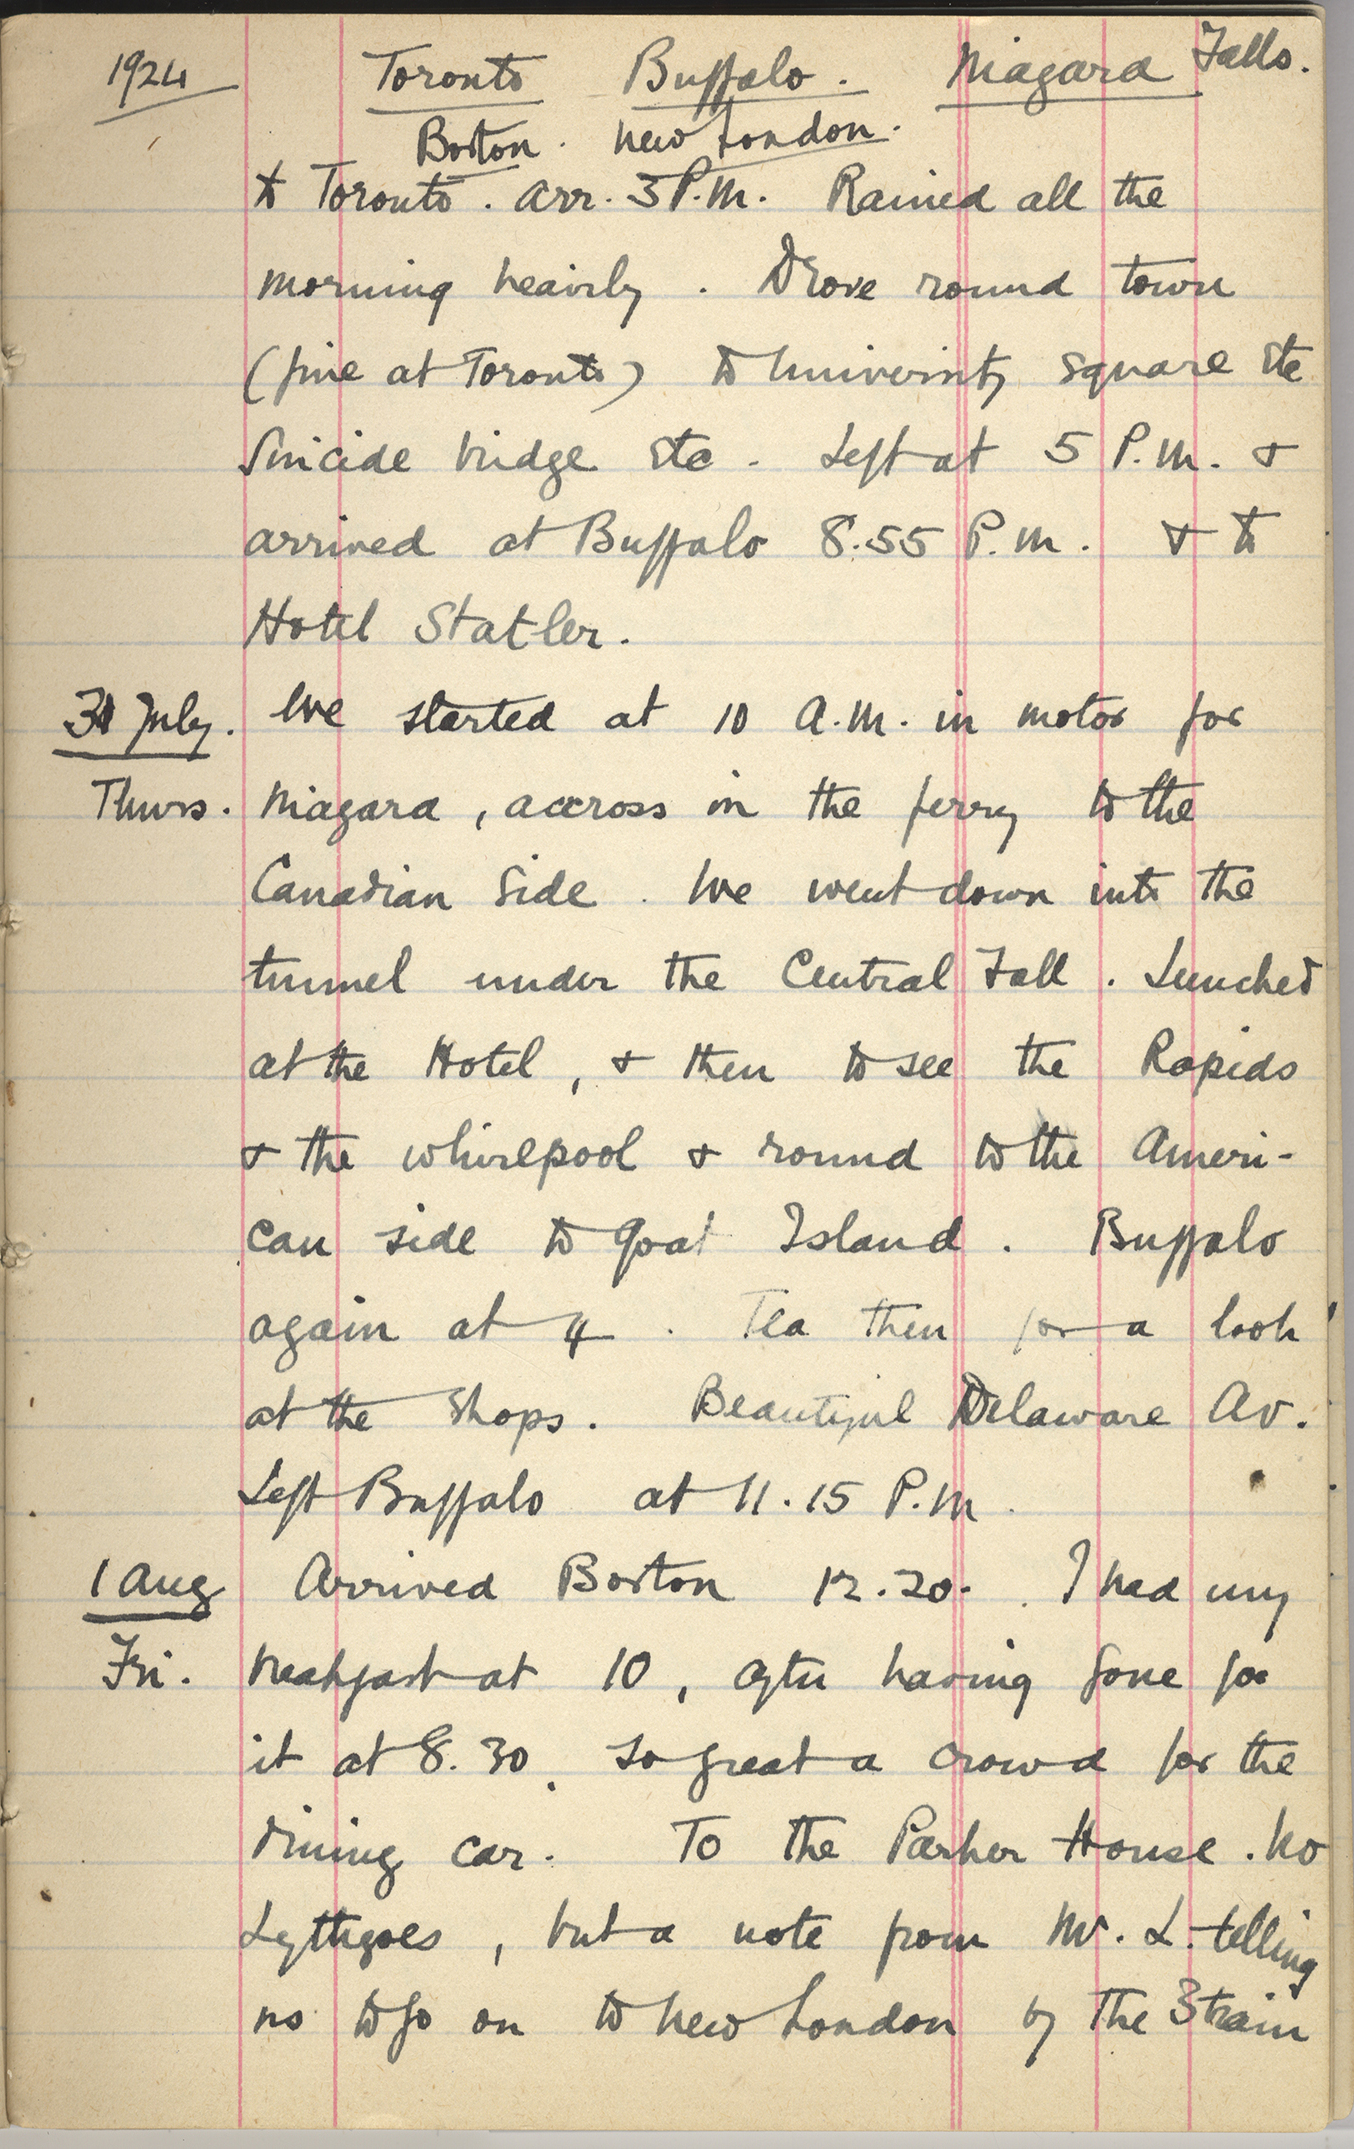 1924 Toronto Buffalo. Niagara Falls.
Boston. New London.
to Toronto. arr. 3 P.M. Rained all the
morning heavily. Drove round town
(fine at Toronto) to University square etc
Suicide bridge etc. Left at 5 P.M. &
arrived at Buffalo 8.55 P.M. & to
Hotel Statler.
31 July. We started at 10 A.M. in motor for
Thurs. Niagara, accross in the ferry to the
Canadian Side. We went down into the
tunnel under the Central Fall. Lunched
at the Hotel, & then to see the Rapids
& the whirlpool & round to the Ameri-
can side to Goat Island. Buffalo
again at 4. Tea then for a look
at the shops. Beautiful Delaware Av.
Left Buffalo at 11.15 P.M.
1 Aug Arrived Boston 12.20. I had my
Fri. breakfast at 10, after having gone for
it at 8.30. So great a crowd for the
dining car. To the Parker House. No
Lythgoes, but a note from Mr. L. telling
us to go on to New London by the 3 train